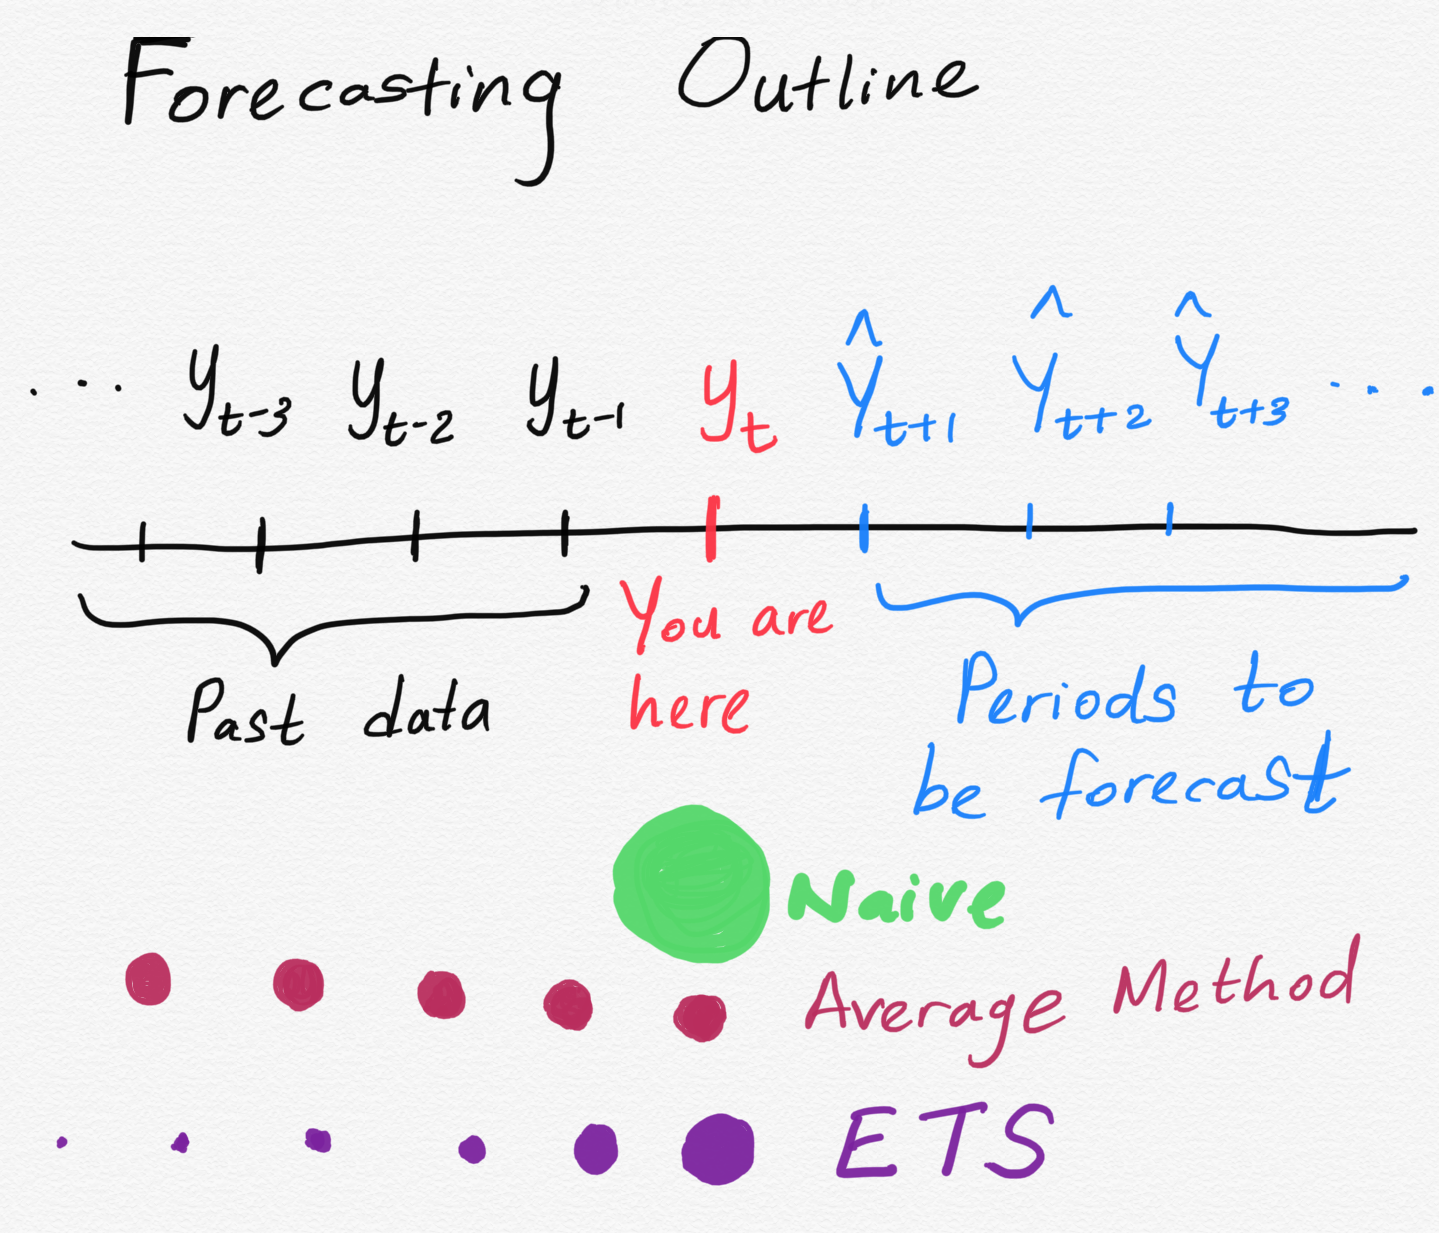 Forecasting Outline
... y_{t-3} y_{t-2} y_{t-1} y_t Ŷ_{t+1} Ŷ_{t+2} Ŷ_{t+3} ....
You are
here
Past data
Periods to
be forecast
Naive
Average Method
ETS